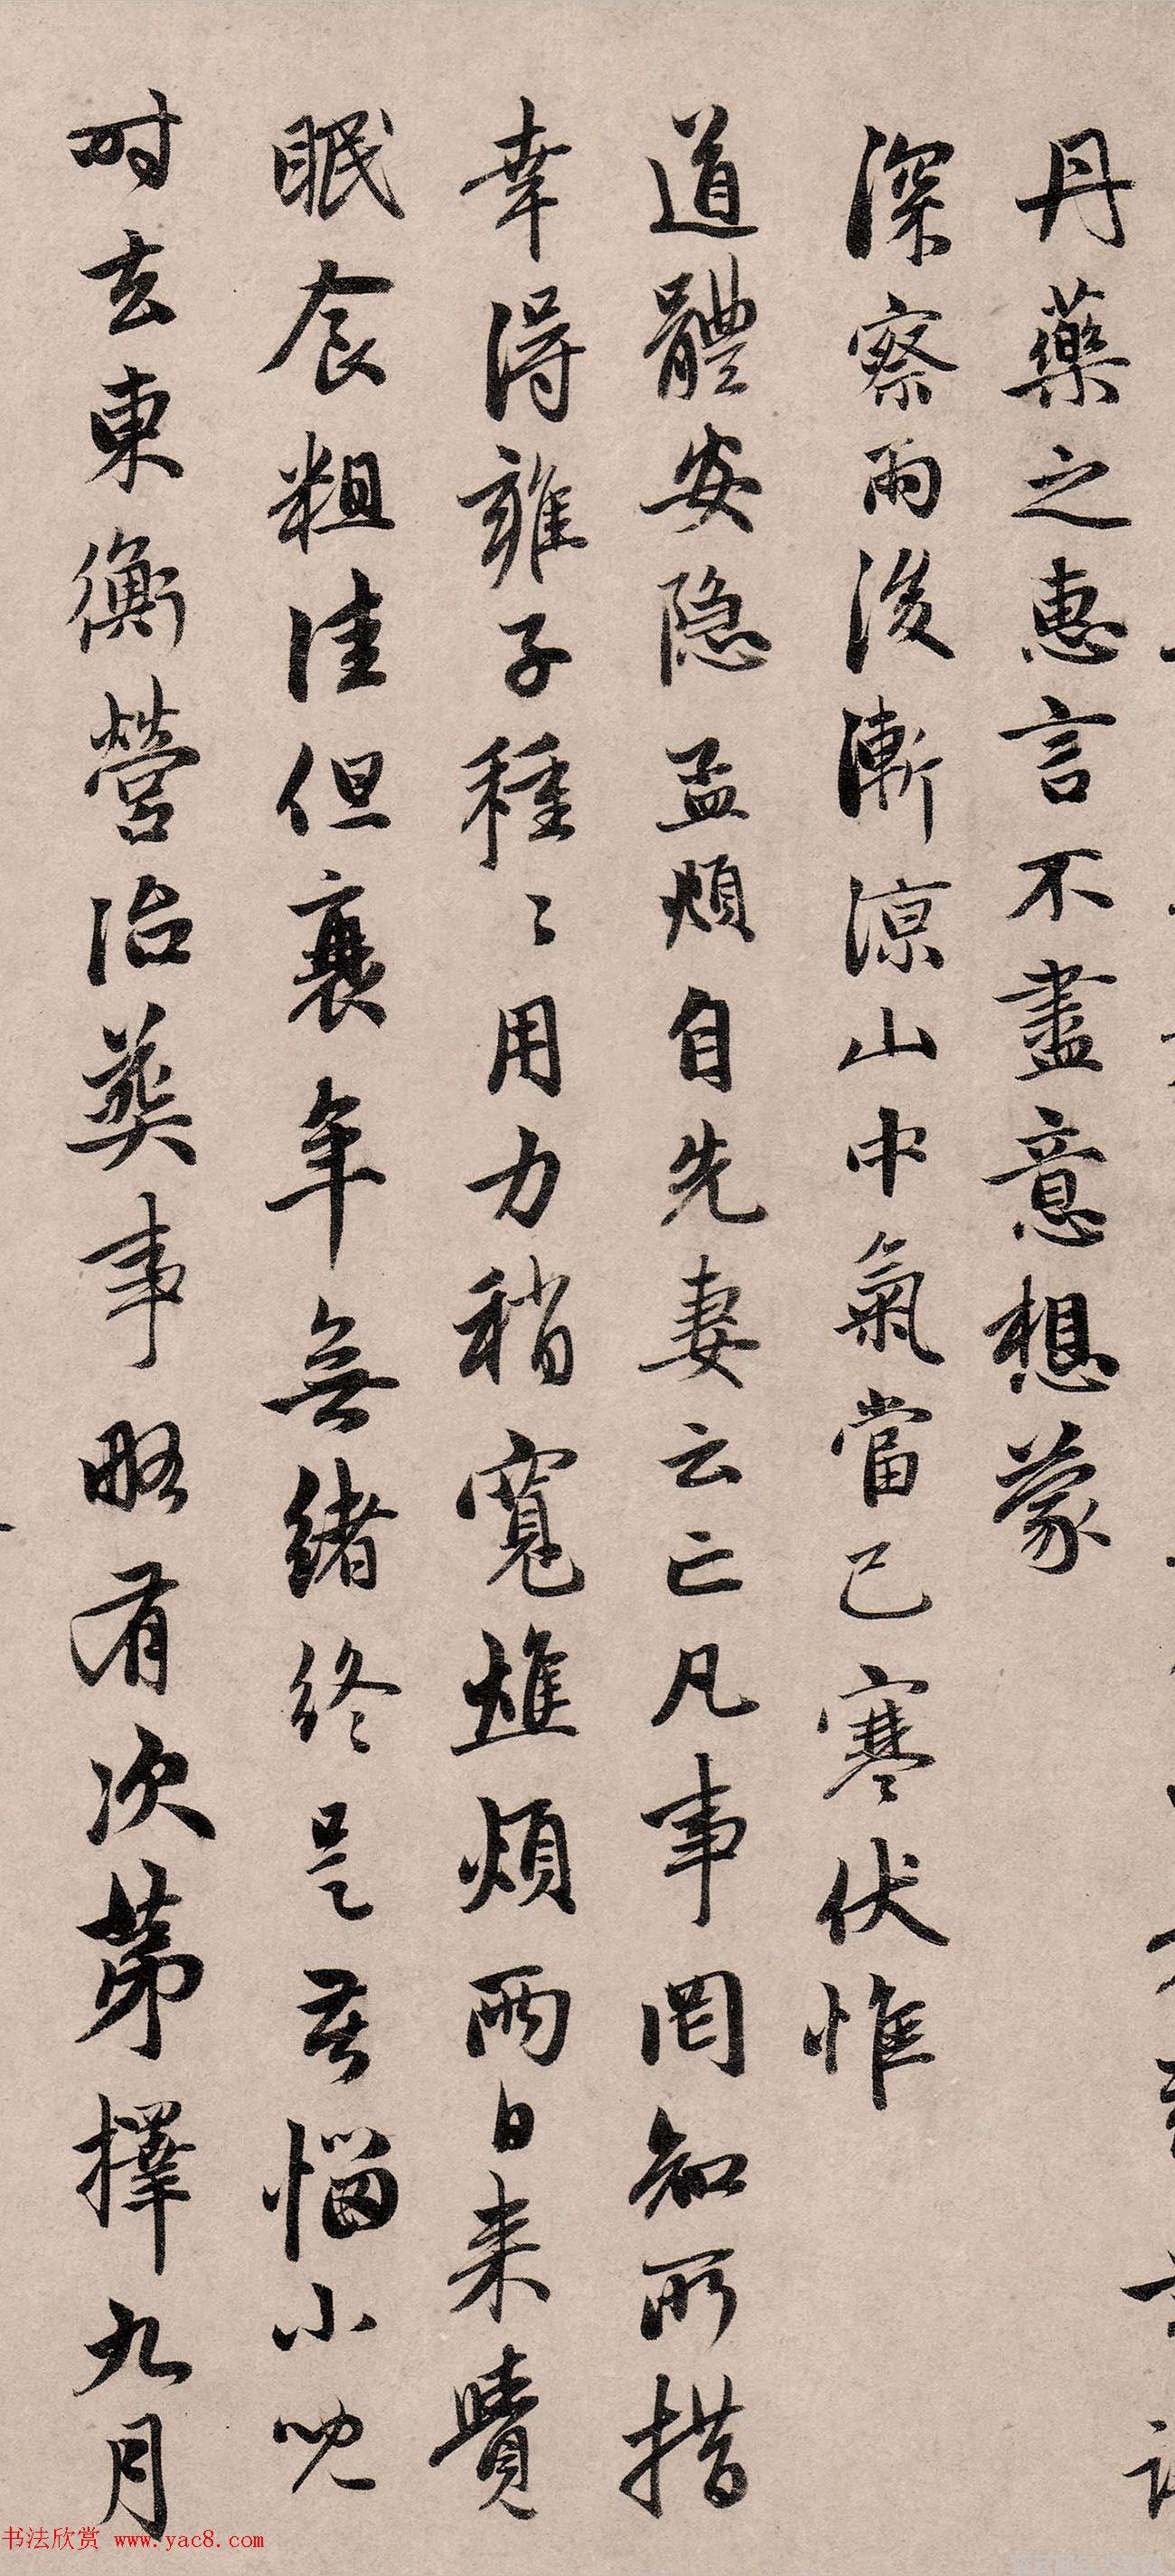 丹藥之惠言不盡意想蒙
深察雨後漸涼山中氣當已寒伏惟
道體安隐孟頫自先妻云亡凡事罔知所措
幸得雍子種〻用力稍寬憔煩兩日来覺
眠食粗佳但衰年無緒終是苦惱小兒
时去東衡營治葬事略有次第擇九月
书法欣赏 www.yac8.com